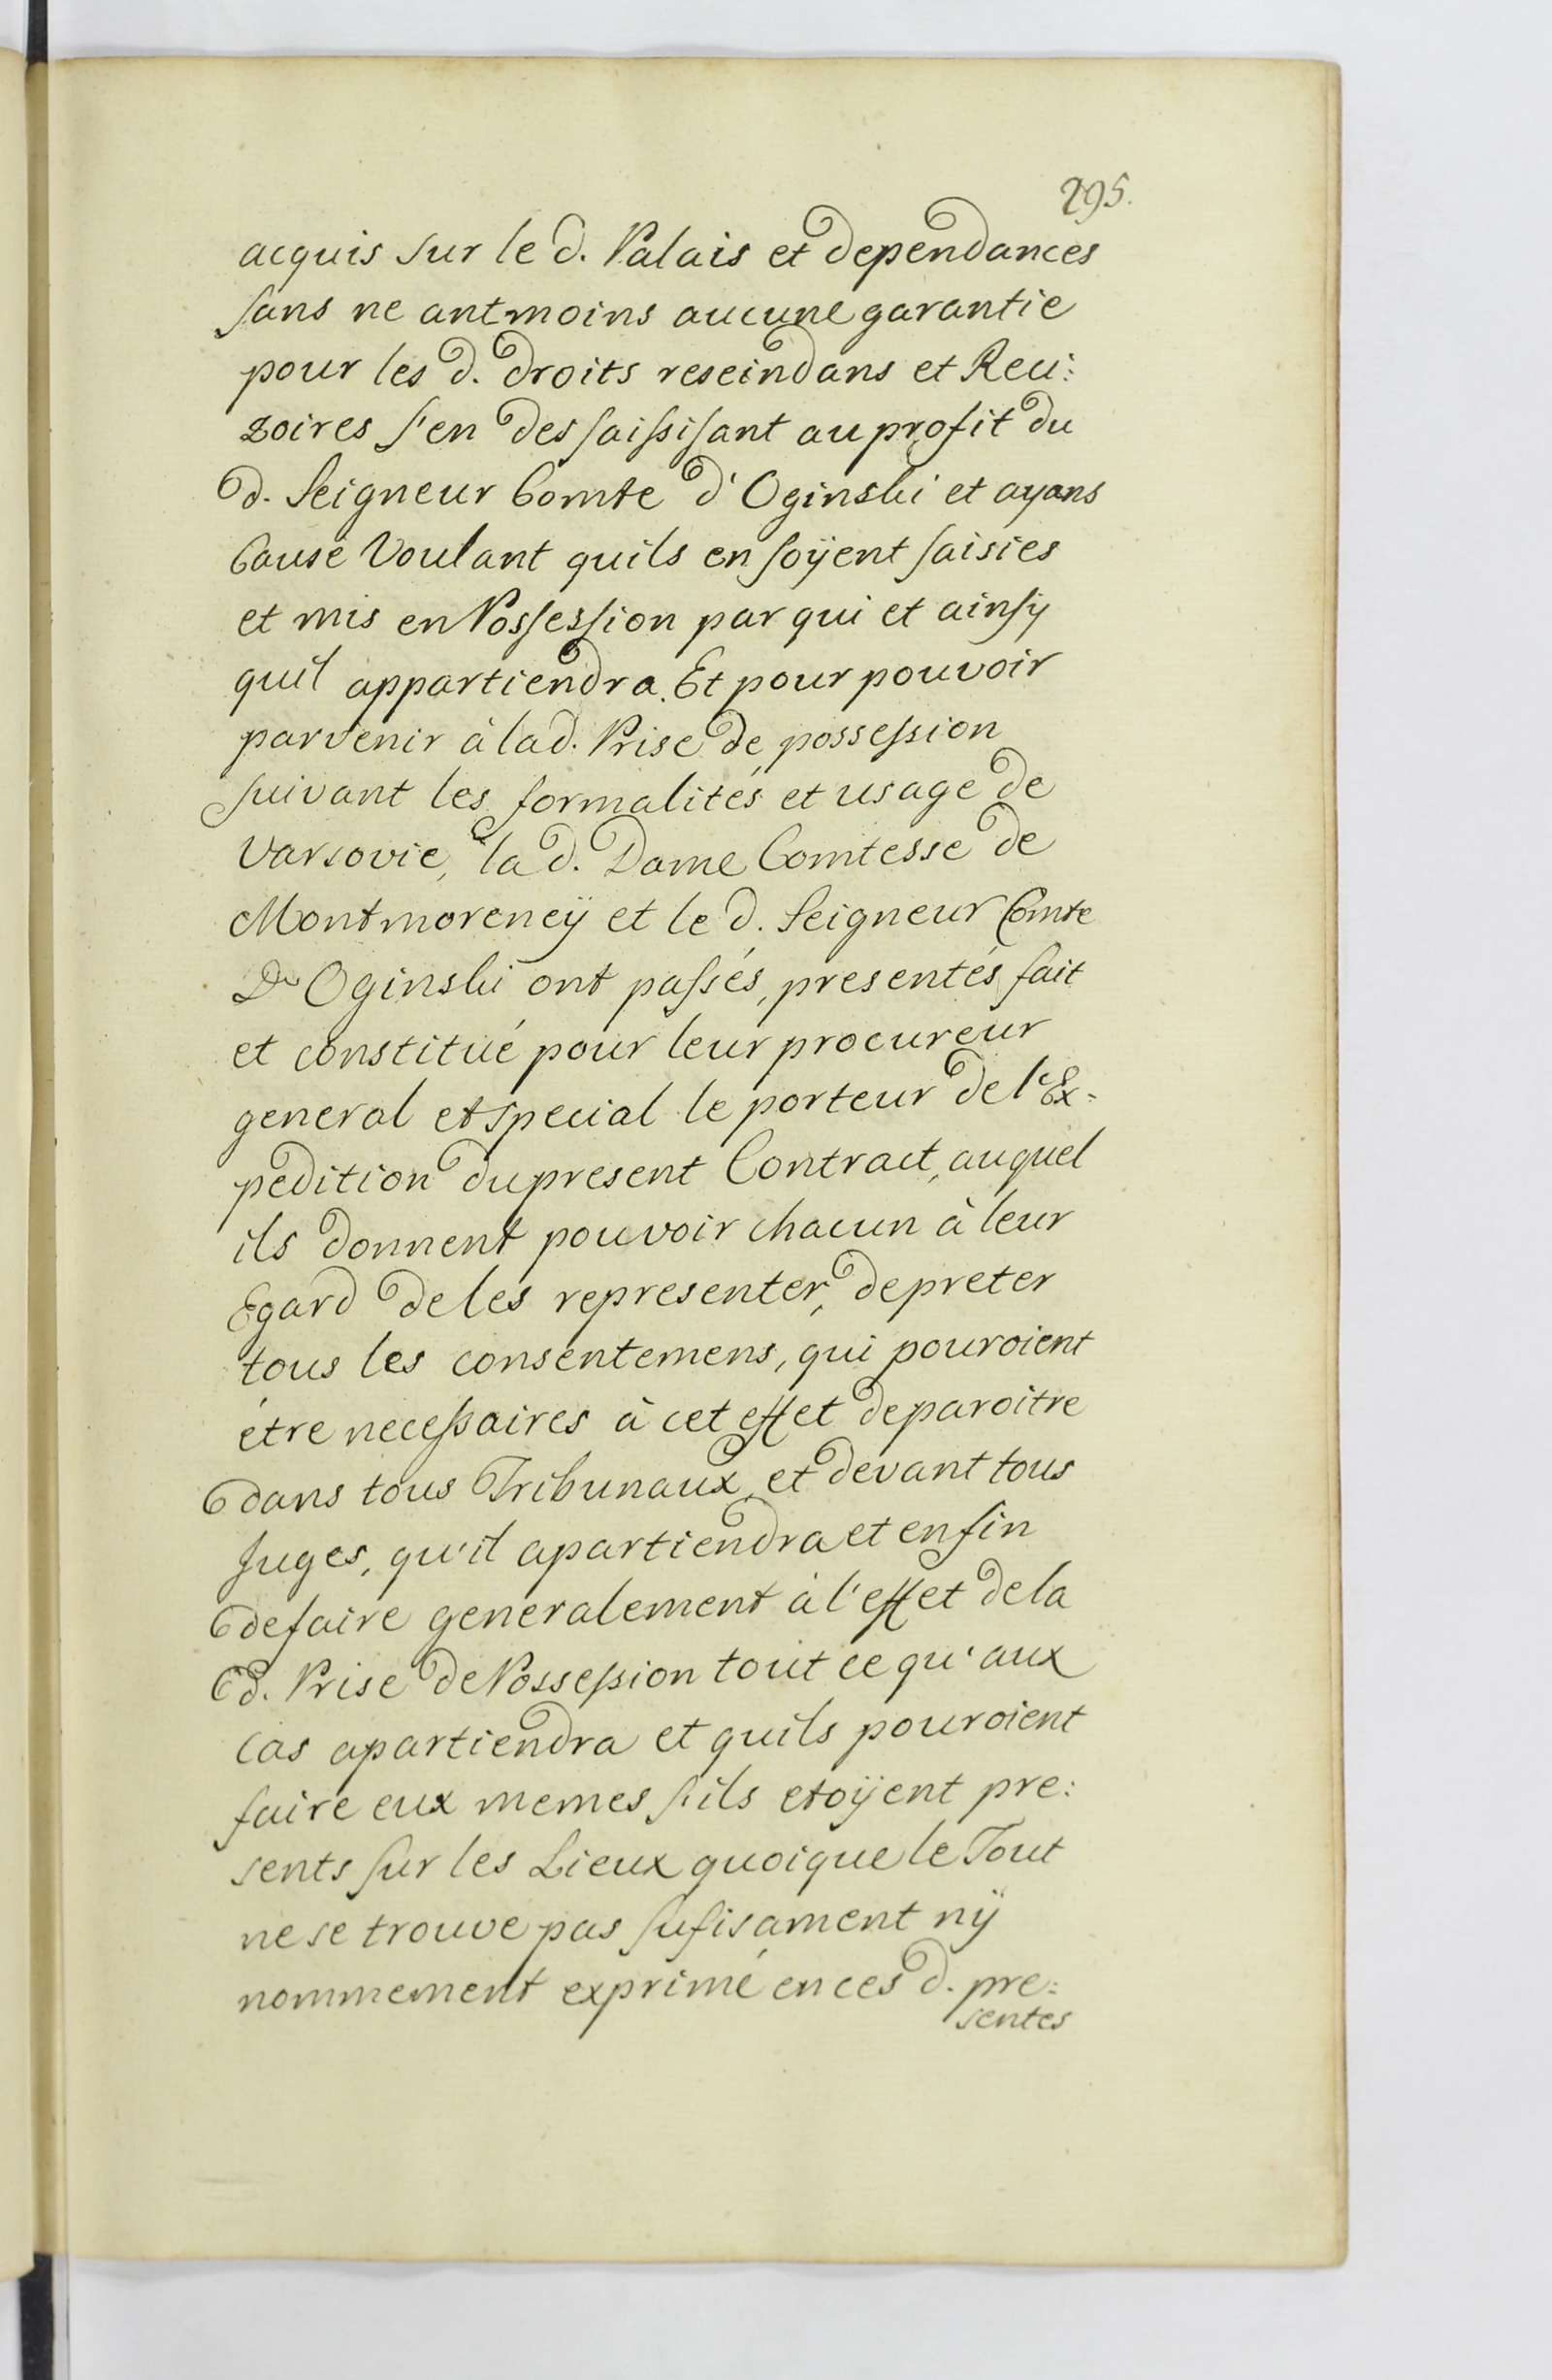 295.
acquis sur le d. Palais et dependances
sans ne antmoins aucune garantie
pour les d. droits reseindans et Reci:
zoires s'en des saissisant au profit du
d. Seigneur Comte d'Oginski et ayans
Cause Voulant quils en soÿent saisies
et mis en Possession par qui et ainsÿ
quil appartiendra. Et pour pouvoir
parvenir à la d. Prise de possession
suivant les formalités et usage de
Varsovie, la d. Dame Comtesse de
Montmorencÿ et le d. Seigneur Comte
D'Oginski ont passés, presentés fait
et constitué pour leur procureur
general et special le porteur de l'Ex-
pedition du present Contract, auquel
ils donnent pouvoir chacun à leur
Egard de les representer, de preter
tous les consentemens, qui pouroient
étre necessaires à cet effet de paroitre
dans tous Tribunaux, et devant tous
Juges, qu'il apartiendra et enfin
de faire generalement à l'effet de la
d. Prise de Possession tout ce qu'aux
cas apartiendra et quils pouroient
faire eux memes s'ils etoÿent pre:
sents sur les Lieux quoique le Tout
ne se trouve pas sufisament nÿ
nommement exprimé en ces d. pre:
sentes